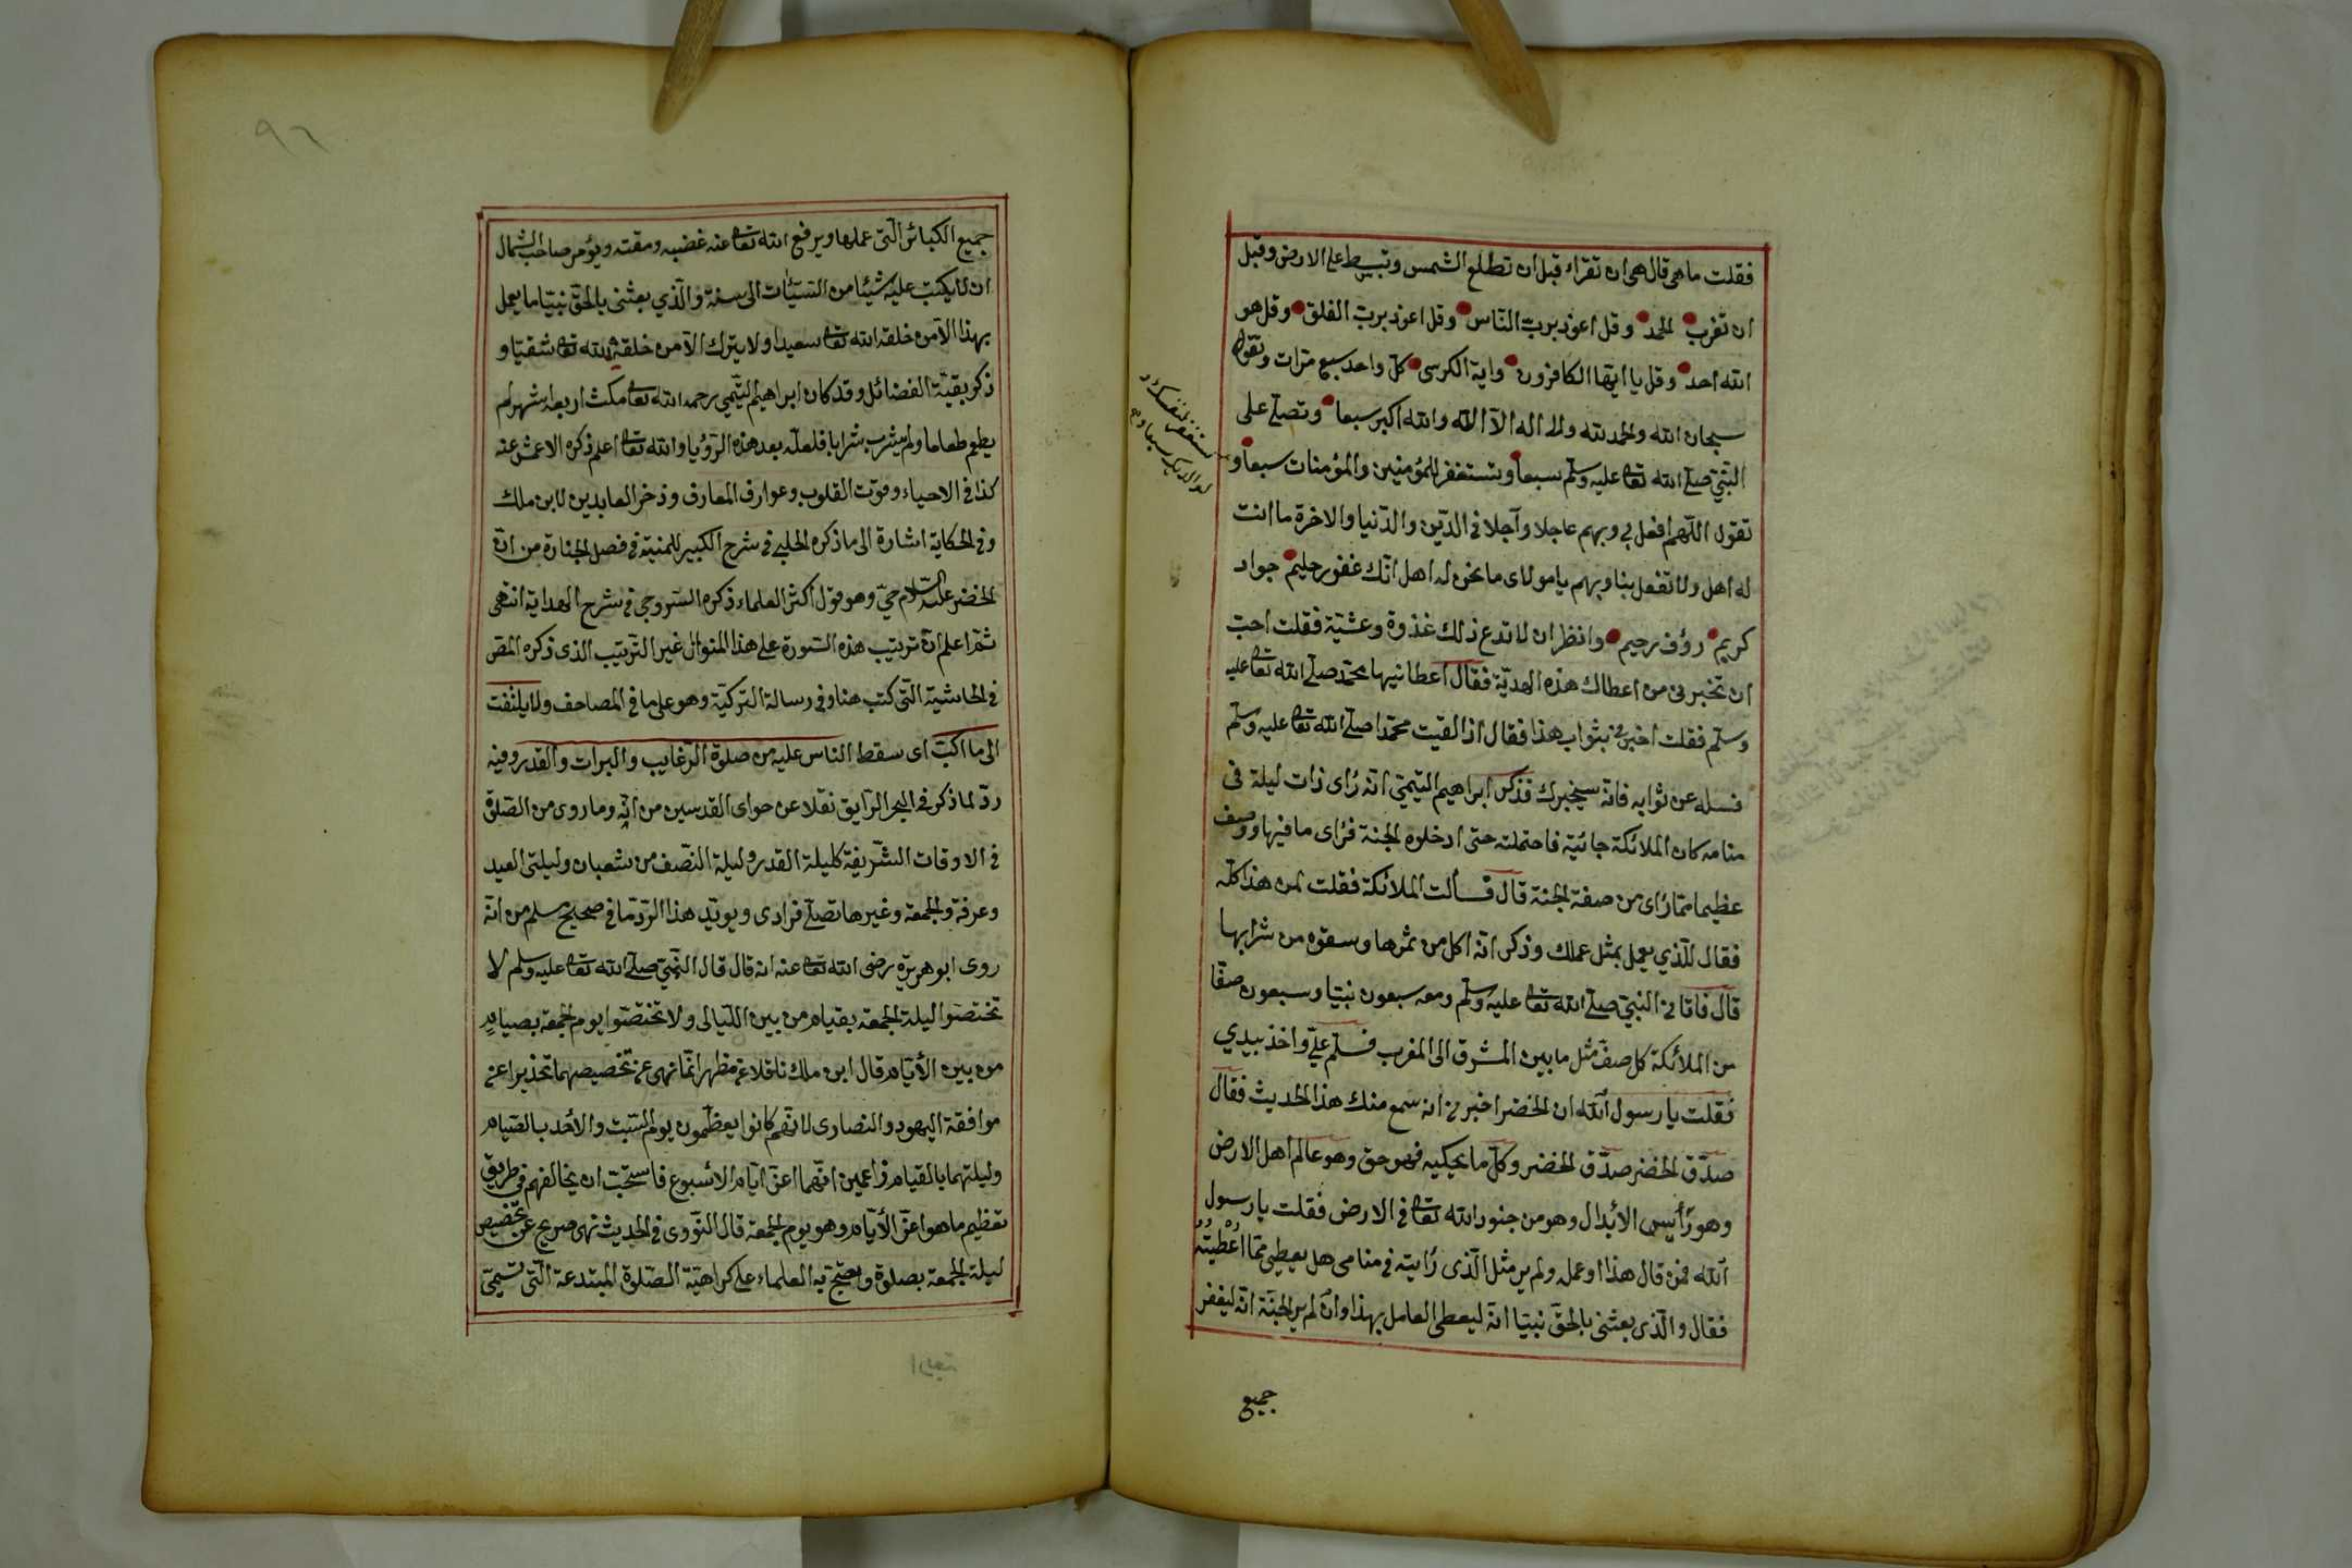 فقلت ما هى قال هى ان تقراء قبل ان تطلع الشمس وتبسط على الارض وقبل
ان تغرب الحمد وقل اعوذ برب النّاس وقل اعوذ بربّ الفلق وقل هو
الله احد وقل يا ايّها الكافرون واية الكرسى كلّ واحد سبع مرّات وتقول
سبحان الله والحمد لله ولا اله الّا الله والله اكبر سبعا وتصلّى على
النّبيّ صلّى الله تعالى عليه وسلّم سبعا وتستغفر للمؤمنين والمؤمنات سبعا و
تقول اللّهم افعل بي وبهم عاجلا وآجلا فى الدّين والدّنيا والاخرة ما انت
له اهل ولا تفعل بنا وبهم يا مولاى ما نحن له اهل انّك غفور حليم جواد
كريم رؤف رحيم وانظر ان لا تدع ذلك غدوة وعشيّة فقلت احبّ
ان تخبرنى من اعطاك هذه الهديّة فقال اعطانيها محمّد صلّى الله تعالى عليه
وسلّم فقلت اخبرنى بثواب هذا فقال اذا لقيت محمّدا صلّى الله تعالى عليه وسلّم
فسله عن ثوابه فانّه سيخبرك فذكر ابراهيم التيمّي انّه رأى ذات ليلة فى
منامه كان الملائكة جائية فاحتملته حتى ادخلوه الجنة فرأى ما فيها ووصف
عظيما ممّا رأى من صفة الجنة قال فسألت الملائكة فقلت لمن هذا كلّه
فقال للّذي يعمل بمثل عملك وذكر انّه اكل من ثمرها وسقوه من شرابها
قال فاتانى النّبيّ صلّى الله تعالى عليه وسلّم ومعه سبعون نبيّا وسبعون صفّا
من الملائكة كل صفّ مثل ما بين المشرق الى المغرب فسلّم عليّ واخذ بيدي
فقلت يا رسول الله ان الخضر اخبرنى انه سمع منك هذا الحديث فقال
صدّق الخضر صدّق الخضر وكلّ ما يحكيه فهو حق وهو عالم اهل الارض
وهو رأيس الأبدال وهو من جنود الله تعالى فى الارض فقلت يا رسول
الله فمن قال هذا او عمله ولم ير مثل الّذى رأيته فى منامى هل يعطى ممّا اُعْطيتُهُ
فقال والّذى بعثنى بالحقّ نبيّا انّه ليعطى العامل بهذا وان لم ير الجنّة انّه ليغفر
جميع
٩٦
جميع الكبائر الّتى عملها ويرفع الله تعالى عنه غضبه ومقته ويؤمر صاحب الشمال
ان لا يكتب عليه شيئا من السّيّئات الى سنة والّذي بعثنى بالحقّ نبيّا ما يعمل
بهذا الّا من خلقه الله تعالى سعيدا ولا يترك الّا من خلقه الله تعالى شقيّا و
ذكر بقيّة الفضائل وقد كان ابراهيم التّيمي رحمه الله تعالى مكث اربعة اشهر لم
يطعم طعاما ولم يشرب شرابا فلعلّه بعد هذه الرّؤيا والله تعالى اعلم ذكره الاعمش عنه
كذا فى الاحياء وقوّت القلوب وعوارف المعارف وذخر العابدين لابن ملك
وفى الحكاية اشارة الى ما ذكره الحلبي فى شرح الكبير للمنية فى فصل الجنازة من انّ
الخضر عليه السّلام حيّ وهو قول اكثر العلماء ذكره السّروجى فى شرح الهداية انتهى
ثمّ اعلم انّ ترتيب هذه السّورة على هذا المنوال غير التّرتيب الذى ذكره المص
فى الحاشية الّتى كتب هنا وفى رسالة التركيّة وهو على ما فى المصاحف ولا يلتفت
الى ما اكبّ اى سقط الناس عليه من صلوة الرّغايب والبرات والقدر وفيه
ردّ لما ذكر فى البحر الرّايق نقلا عن حواى القدسين من انّه وما روى من الصّلوة
فى الاوقات الشّريفة كليلة القدر وليلة النّصف من شعبان وليلتى العيد
وعرفة والجمعة وغيرها تصلّى فرادى ويويّد هذا الرّدّ ما فى صحيح مسلم من انّه
روى ابو هريرة رضى الله تعالى عنه انه قال قال النّبيّ صلّى الله تعالى عليه وسلّم لا
تختصّوا ليلة الجمعة بقيام من بين اللّيالى ولا تختصّوا يوم الجمعة بصيامٍ
من بين الأيّام قال ابن ملك ناقلا عن مظهر انّما نهى عن تخصيصهما تحذيرا عن
موافقة اليهود والنصارى لانّهم كانوا يعظّمون يوم السّبت والأحد بالصّيام
وليلتهما بالقيام زاعمين انّهما اعزّ ايّام الاسبوع فاستحبّ ان يخالفهم فى طريق
تعظيم ما هو اعزّ الأيّام وهو يوم الجمعة قال النّووى فى الحديث نهى صريح عن تخصيص
ليلة الجمعة بصلوة ويحتجّ به العلماء على كراهيّة الصّلوة المبتدعة الّتى تسمّى